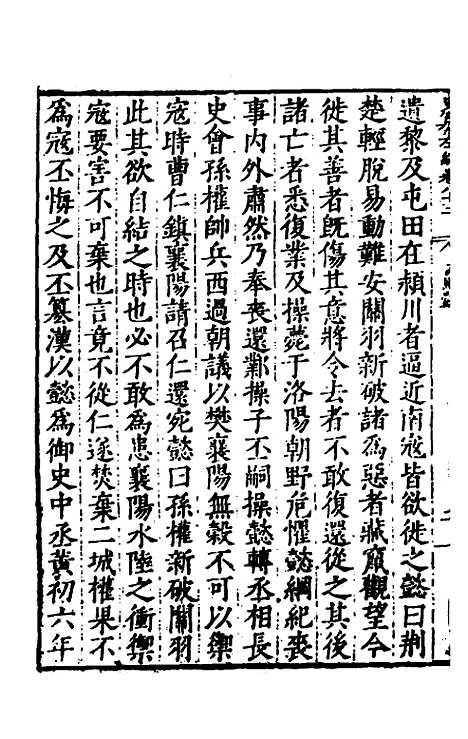 遺黎及屯田在頴川者逼近南寇皆欲徙之懿曰荆
楚輕脫易動難安關羽新破諸爲惡者藏竄觀望今
徙其善者旣傷其意將令去者不敢復還從之其後
諸亡者悉復業及操薨于洛陽朝野危懼懿綱紀喪
事内外肅然乃奉喪還鄴操子丕嗣操懿轉丞相長
史會孫權帥兵西過朝議以樊襄陽無榖不可以禦
寇時曹仁鎮襄陽請召仁還宛懿曰孫權新破關羽
此其欲自結之時也必不敢爲患襄陽水陸之衝禦
寇要害不可棄也言竟不從仁遂焚棄二城權果不
爲寇丕悔之及丕簒漢以懿爲御史中丞黄初六年